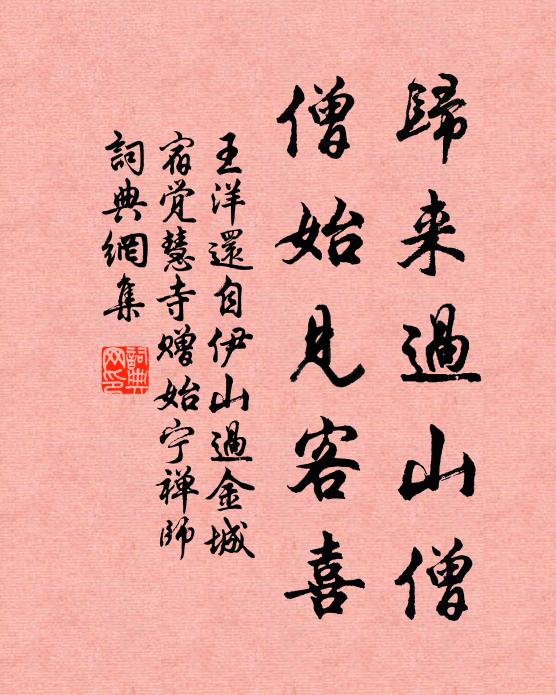 歸来過山僧
僧始見客喜
王洋還自伊山過金城
宿覚慧寺赠始宁禅師
詞典網集
詞典
网印